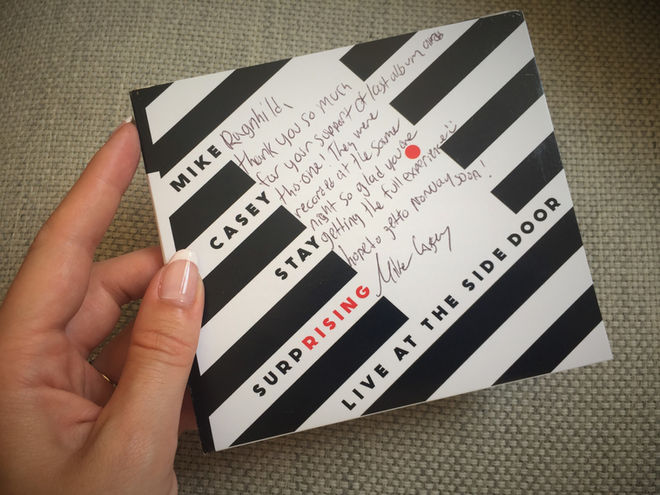 MIKE
CASEY
STAY
SURPRISING
LIVE AT THE SIDE DOOR
Ragnhild,
thank you so much
for your support of last album and
this one! They were
recorded at the same
night so glad you are
getting the full experience!
hope to get to soon!
Mike Casey